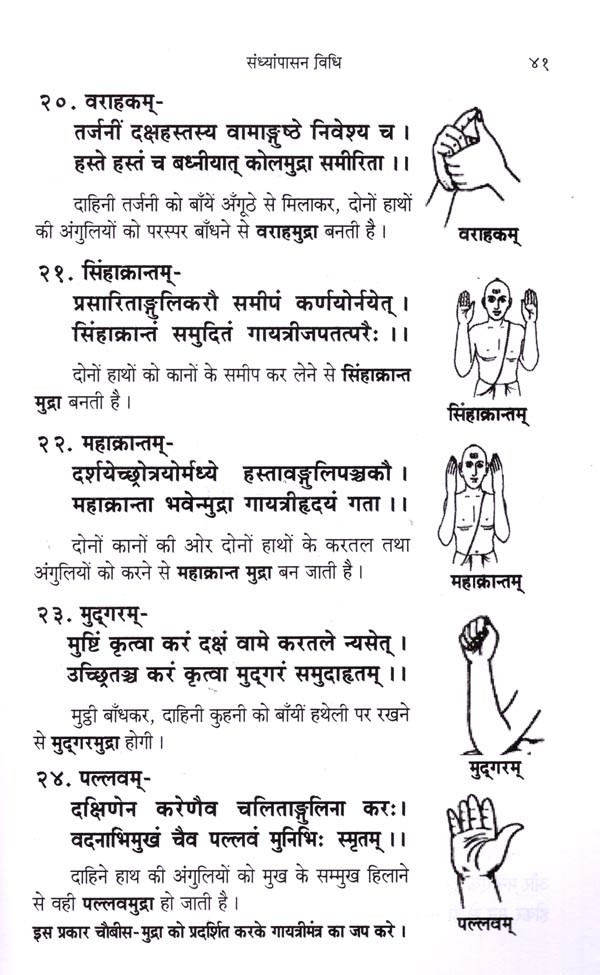 संध्यांपासन विधि ४१
२०. वराहकम्-
तर्जनीं दक्षहस्तस्य वामाङ्गुष्ठे निवेश्य च ।
हस्ते हस्तं च बध्नीयात् कोलमुद्रा समीरिता ।।
दाहिनी तर्जनी को बाँयें अँगूठे से मिलाकर, दोनों हाथों
की अंगुलियों को परस्पर बाँधने से वराहमुद्रा बनती है ।
वराहकम्
२१. सिंहाक्रान्तम्-
प्रसारिताङ्गुलिकरौ समीपं कर्णयोर्नयेत् ।
सिंहाक्रान्तं समुदितं गायत्रीजपतत्परैः ।।
दोनों हाथों को कानों के समीप कर लेने से सिंहाक्रान्त
मुद्रा बनती है ।
सिंहाक्रान्तम्
२२. महाक्रान्तम्-
दर्शयेच्छ्रोत्रयोर्मध्ये हस्तावङ्गुलिपञ्चकौ ।
महाक्रान्ता भवेन्मुद्रा गायत्रीहृदयं गता ।।
दोनों कानों की ओर दोनों हाथों के करतल तथा
अंगुलियों को करने से महाक्रान्त मुद्रा बन जाती है ।
महाक्रान्तम्
२३. मुद्गरम्-
मुष्टिं कृत्वा करं दक्षं वामे करतले न्यसेत् ।
उच्छ्रितञ्च करं कृत्वा मुद्गरं समुदाहृतम् ।।
मुट्ठी बाँधकर, दाहिनी कुहनी को बाँयीं हथेली पर रखने
से मुद्गरमुद्रा होगी ।
मुद्गरम्
२४. पल्लवम्-
दक्षिणेन करेणैव चलिताङ्गुलिना करः।
वदनाभिमुखं चैव पल्लवं मुनिभिः स्मृतम् ।।
दाहिने हाथ की अंगुलियों को मुख के सम्मुख हिलाने
से वही पल्लवमुद्रा हो जाती है ।
पल्लवम्
इस प्रकार चौबीस-मुद्रा को प्रदर्शित करके गायत्रीमंत्र का जप करे ।